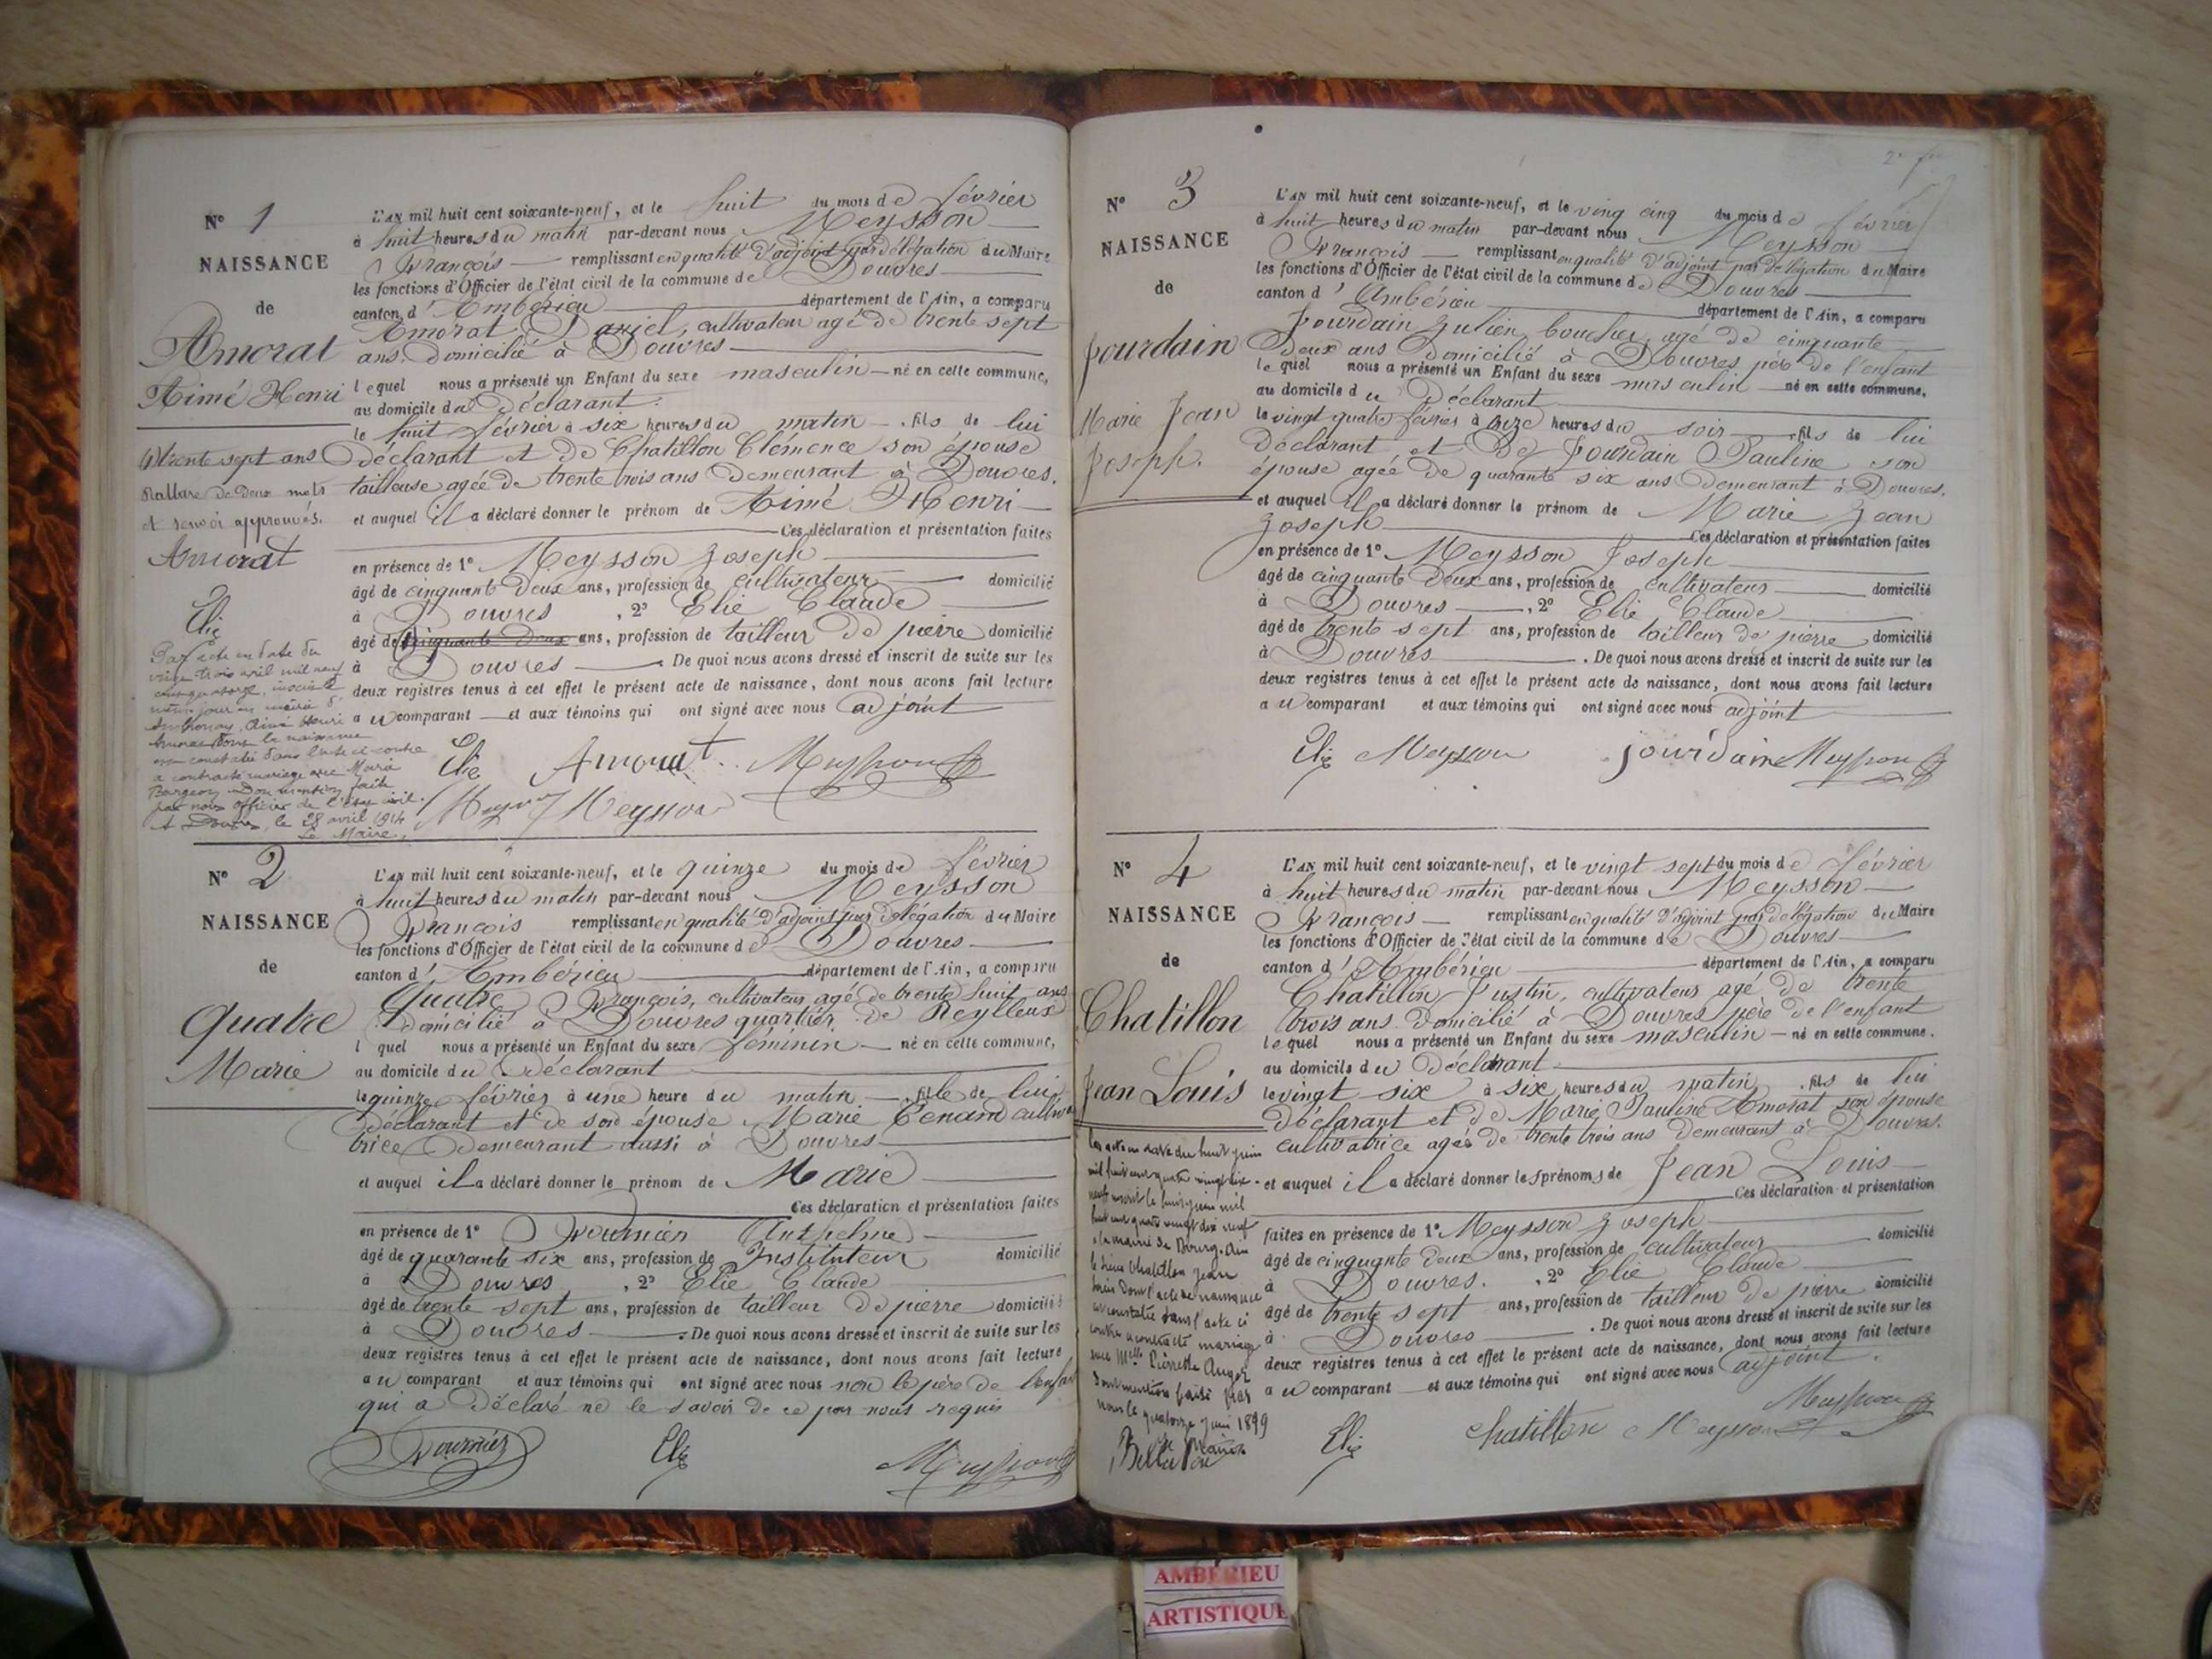 N° 1
NAISSANCE
de
Amorat
Aimé Henri
(1) trente sept ans
Rature de deux mots
et renvoi approuvés.
Amorat
Elie
Par acte en date du
vingt trois avril mil neuf
cent quatorze, inscrit le
même jour en mairie d'
Aimé Henri
Amorat dont la naissance
est constatée dans l'acte ci-contre
a contracté mariage avec Marie
Bargeon. Dont mention faite
par nous officier de l'état civil.
A Douvres, le 28 avril 1914
Le Maire,
L'AN mil huit cent soixante-neuf, et le huit du mois de février
à huit heures du matin par-devant nous Meysson
François remplissant en qualité d'adjoint par délégation du Maire
les fonctions d'Officier de l'état civil de la commune de Douvres
canton d'Ambérieu département de l'Ain, a comparu
Amorat Daniel, cultivateur agé de trente sept
ans, domicilié à Douvres
lequel nous a présenté un Enfant du sexe masculin né en cette commune,
au domicile du Déclarant.
le huit février à six heures du matin fils de lui
déclarant et de Chatillon Clémence son épouse
tailleuse agée de trente trois ans demeurant à Douvres.
et auquel il a déclaré donner le prénom de Aimé Henri
Ces déclaration et présentation faites
en présence de 1° Meysson Joseph
âgé de cinquante deux ans, profession de cultivateur domicilié
à Douvres, 2° Elie Claude
âgé de cinquante deux ans, profession de tailleur de pierre domicilié
à Douvres. De quoi nous avons dressé et inscrit de suite sur les
deux registres tenus à cet effet le présent acte de naissance, dont nous avons fait lecture
au comparant et aux témoins qui ont signé avec nous adjoint
Elie Amorat Meysson
Meysson
N° 2
NAISSANCE
de
Quatre
Marie
L'AN mil huit cent soixante-neuf, et le quinze du mois de février
à huit heures du matin par-devant nous Meysson
François remplissant en qualité d'adjoint par délégation du Maire
les fonctions d'Officier de l'état civil de la commune de Douvres
canton d'Ambérieu département de l'Ain, a comparu
Quatre François, cultivateur agé de trente huit ans
domicilié à Douvres quartier de Reylleux
l quel nous a présenté un Enfant du sexe féminin né en cette commune,
au domicile du Déclarant
le quinze février à une heure du matin. fille de lui
déclarant et de son épouse Marie Tenand cultiva
trice demeurant aussi à Douvres
et auquel il a déclaré donner le prénom de Marie
Ces déclaration et présentation faites
en présence de 1° Fournier Anthelme
âgé de quarante six ans, profession de Instituteur domicilié
à Douvres, 2° Elie Claude
âgé de trente sept ans, profession de tailleur de pierre domicilié
à Douvres. De quoi nous avons dressé et inscrit de suite sur les
deux registres tenus à cet effet le présent acte de naissance, dont nous avons fait lecture
au comparant et aux témoins qui ont signé avec nous non le père de l'enfant
qui a déclaré ne le savoir de ce par nous requis
Fournier Elie Meysson
N° 3
NAISSANCE
de
Jourdain
Marie Jean
Joseph.
L'AN mil huit cent soixante-neuf, et le ving cinq du mois de février
à huit heures du matin par-devant nous Meysson
François remplissant en qualité d'adjoint par délégation du Maire
les fonctions d'Officier de l'état civil de la commune de Douvres
canton d'Ambérieu département de l'Ain, a comparu
Jourdain Julien, boucher, agé de cinquante
deux ans domicilié à Douvres père de l'enfant
lequel nous a présenté un Enfant du sexe masculin né en cette commune.
au domicile du Déclarant
le vingt quatre février à onze heures du soir fils de lui
déclarant et de Jourdain Pauline son
épouse agée de quarante six ans demeurant à Douvres.
et auquel il a déclaré donner le prénom de Marie Jean
Joseph Ces déclaration et présentation faites
en présence de 1° Meysson Joseph
âgé de cinquante deux ans, profession de cultivateur domicilié
à Douvres, 2° Elie Claude
âgé de trente sept ans, profession de tailleur de pierre domicilié
à Douvres. De quoi nous avons dressé et inscrit de suite sur les
deux registres tenus à cet effet le présent acte de naissance, dont nous avons fait lecture
au comparant et aux témoins qui ont signé avec nous adjoint
Elie Meysson jourdain Meysson
N° 4
NAISSANCE
de
Chatillon
Jean Louis
Par acte en date du huit juin
mil huit cent quatre vingt dix
neuf inscrit le huit juin mil
huit cent quatre vingt dix neuf
à la mairie de Bourg. Ain
le sieur Chatillon Jean
Louis dont l'acte de naissance
est constatée dans l'acte ci
contre a contracté mariage
avec Melle Pierrette Auger
Dont mention faite par
nous le quatorze juin 1899
L'AN mil huit cent soixante-neuf, et le vingt sept du mois de février
à huit heures du matin par-devant nous Meysson
François remplissant en qualité d'adjoint par délégation du Maire
les fonctions d'Officier de l'état civil de la commune de Douvres
canton d'Ambérieu département de l'Ain, a comparu
Chatillon Justin, cultivateur agé de trente
trois ans domicilié à Douvres père de l'enfant
lequel nous a présenté un Enfant du sexe masculin né en cette commune.
au domicile du Déclarant
le vingt six à six heures du matin. fils de lui
déclarant et de Marie Pauline Amorat son épouse
cultivatrice agée de trente trois ans demeurant à Douvres.
et auquel il a déclaré donner les prénoms de Jean Louis
Ces déclaration et présentation
faites en présence de 1° Meysson Joseph
âgé de cinquante deux ans, profession de cultivateur domicilié
à Douvres. , 2° Elie Claude
âgé de trente sept ans, profession de tailleur de pierre domicilié
à Douvres. De quoi nous avons dressé et inscrit de suite sur les
deux registres tenus à cet effet le présent acte de naissance, dont nous avons fait lecture
au comparant et aux témoins qui ont signé avec nous adjoint.
Meysson
Elie chatillon Meysson
AMBÉRIEU
ARTISTIQUE